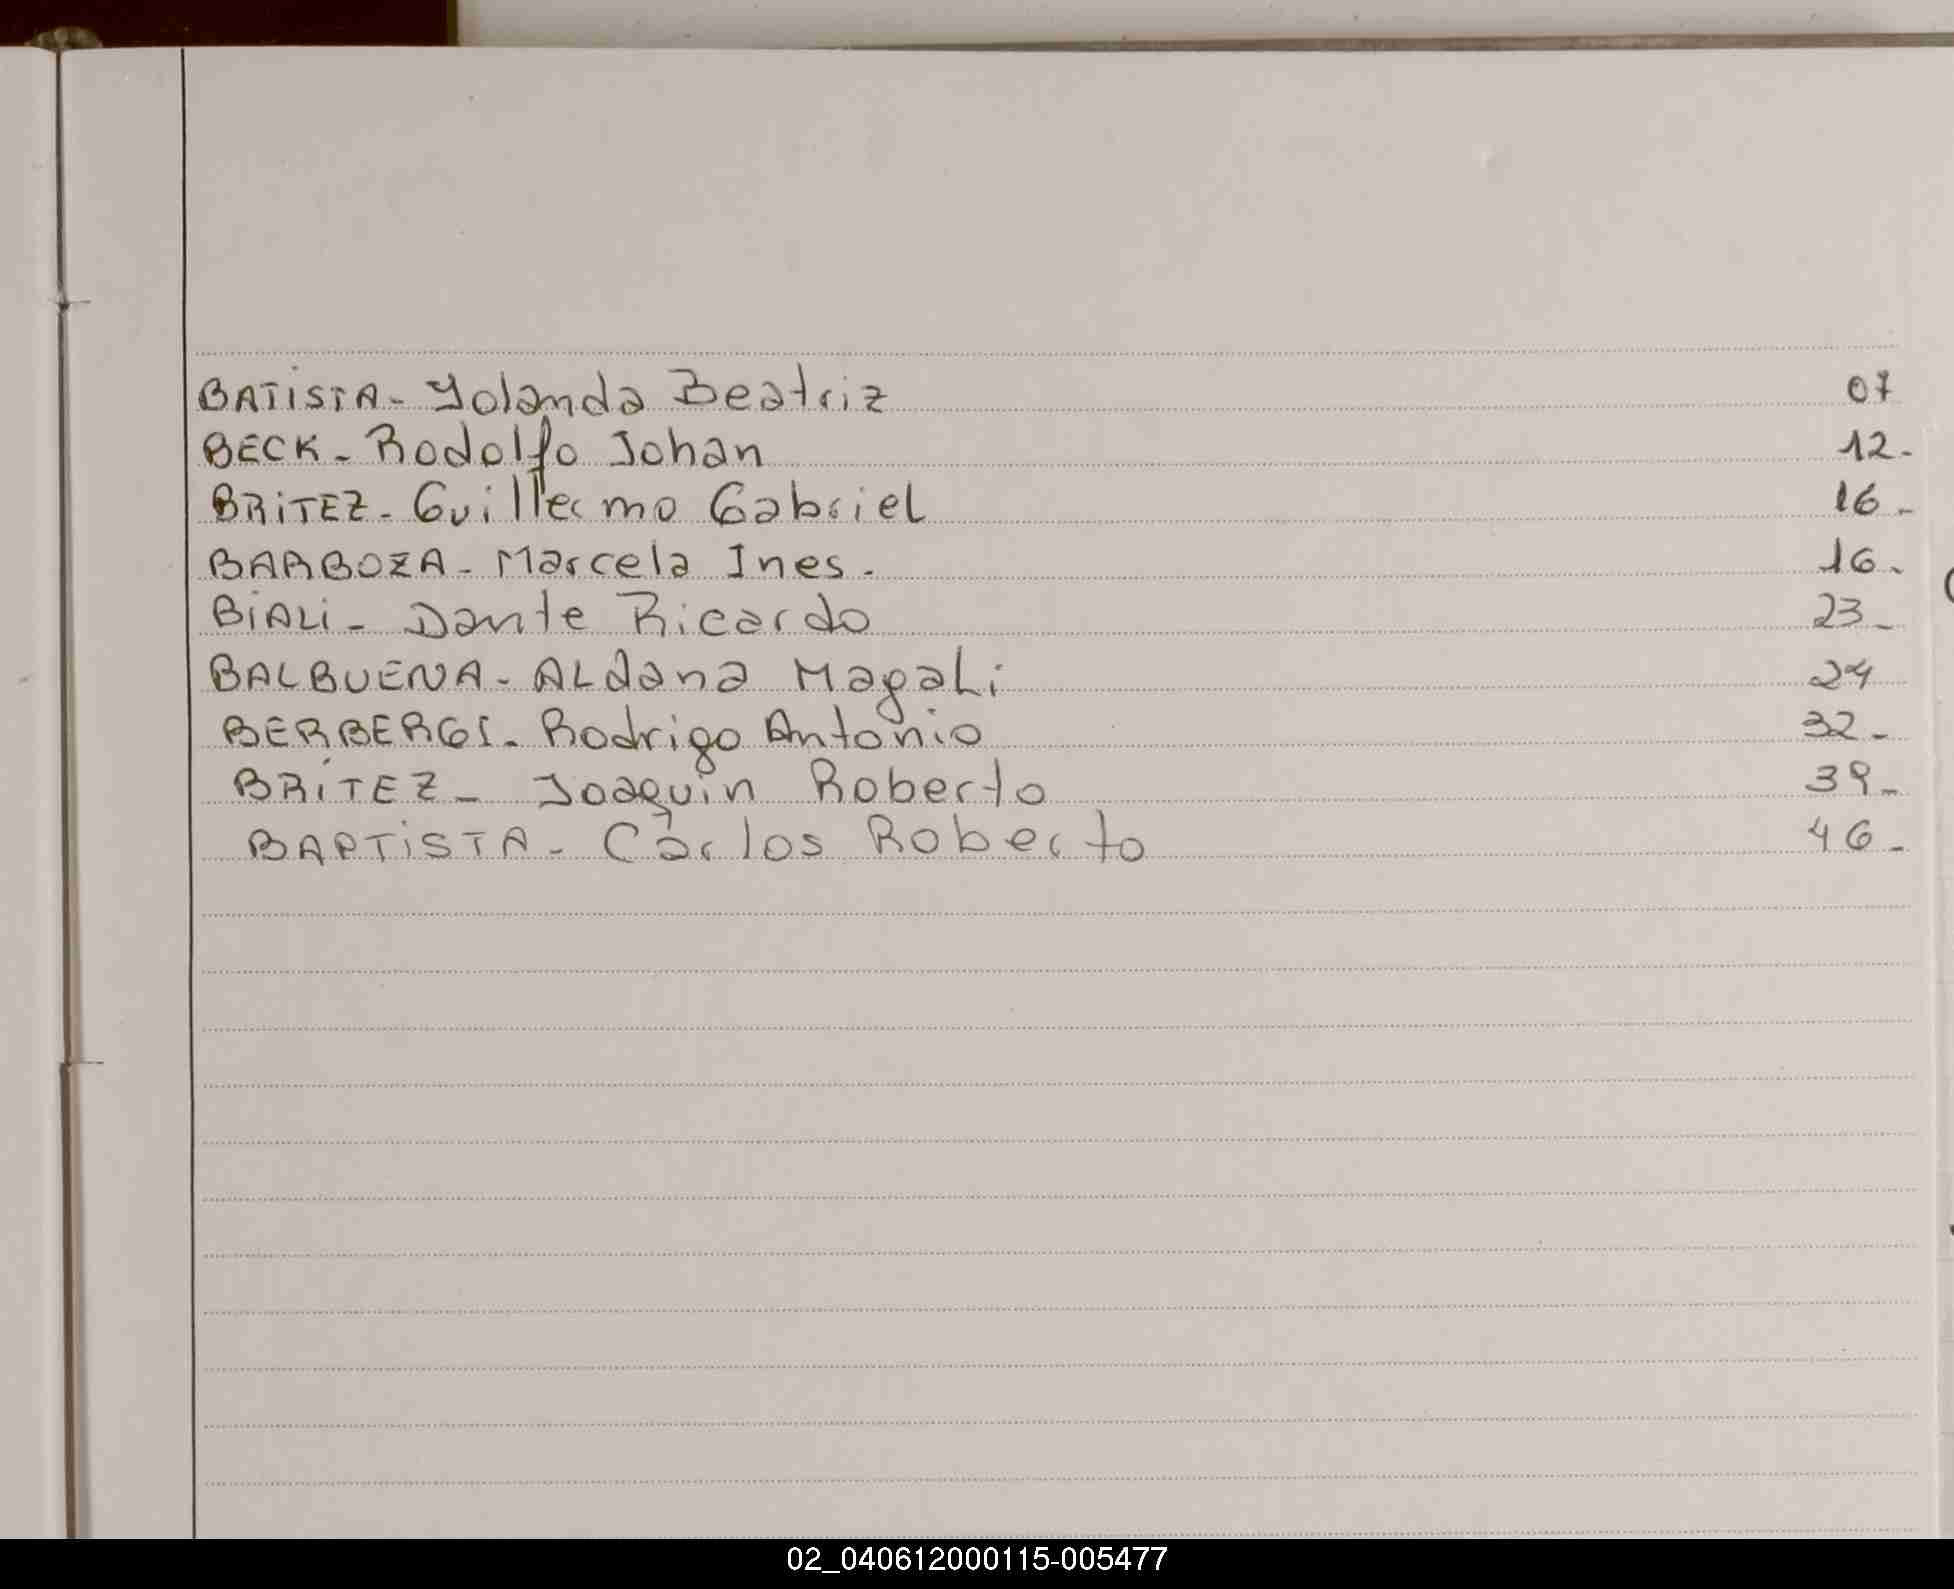 BATISTA - Yolanda Beatriz 07
BECK - Rodolfo Johan 12 -
BRITEZ - Guillermo Gabriel 16 -
BARBOZA - Marcela Ines. 16 -
BIALI - Dante Ricardo 23 -
BALBUENA - Aldana Magali 24
BERBERGS - Rodrigo Antonio 32 -
BRITEZ - Joaquin Roberto 39 -
BAPTISTA - Carlos Roberto 46 -
02_040612000115-005477